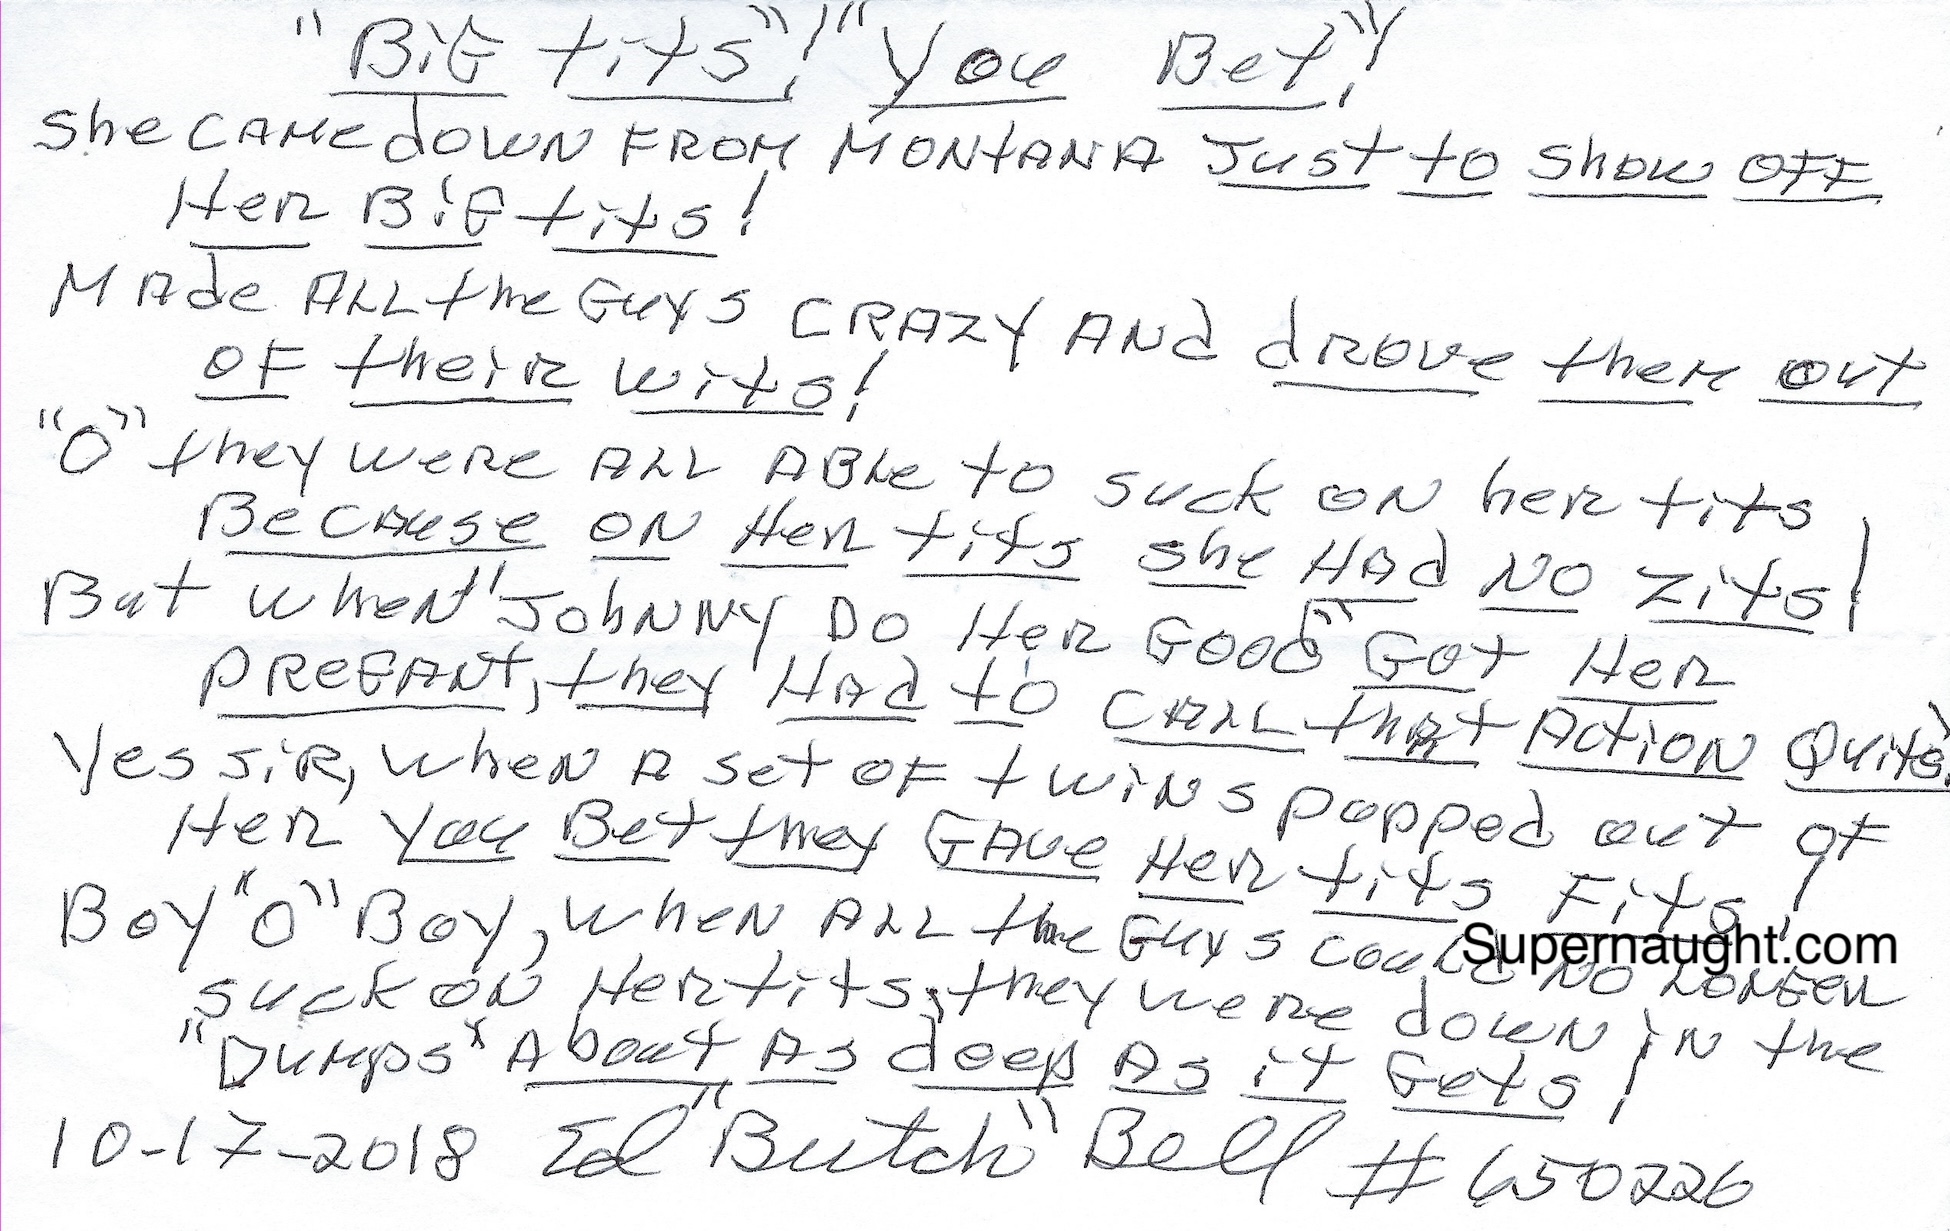 "BiG tits"! "You Bet"!
She CAME down FROM MONtANA Just to Show OFF
Her BiG tits!
MAde ALL the GuyS CRAZY ANd drove them out
OF their wits!
"O" they were ALL ABLe to suck on her tits
Because on Her tits she HAd NO Zits!
But when "JohNNy DO Her GOOd" Got Her
PREGANt, they HAd to CALL thAt Action Quits!
Yes siR, when A set OF twins popped out of
Her You Bet they GAve Her tits Fits!
Boy "O" Boy, when ALL the Guys could NO LONGER
suck on Her tits, they were down in the
"Dumps" About As deep As it Gets!
10-17-2018 Ed "Butch" Bell #650226
Supernaught.com